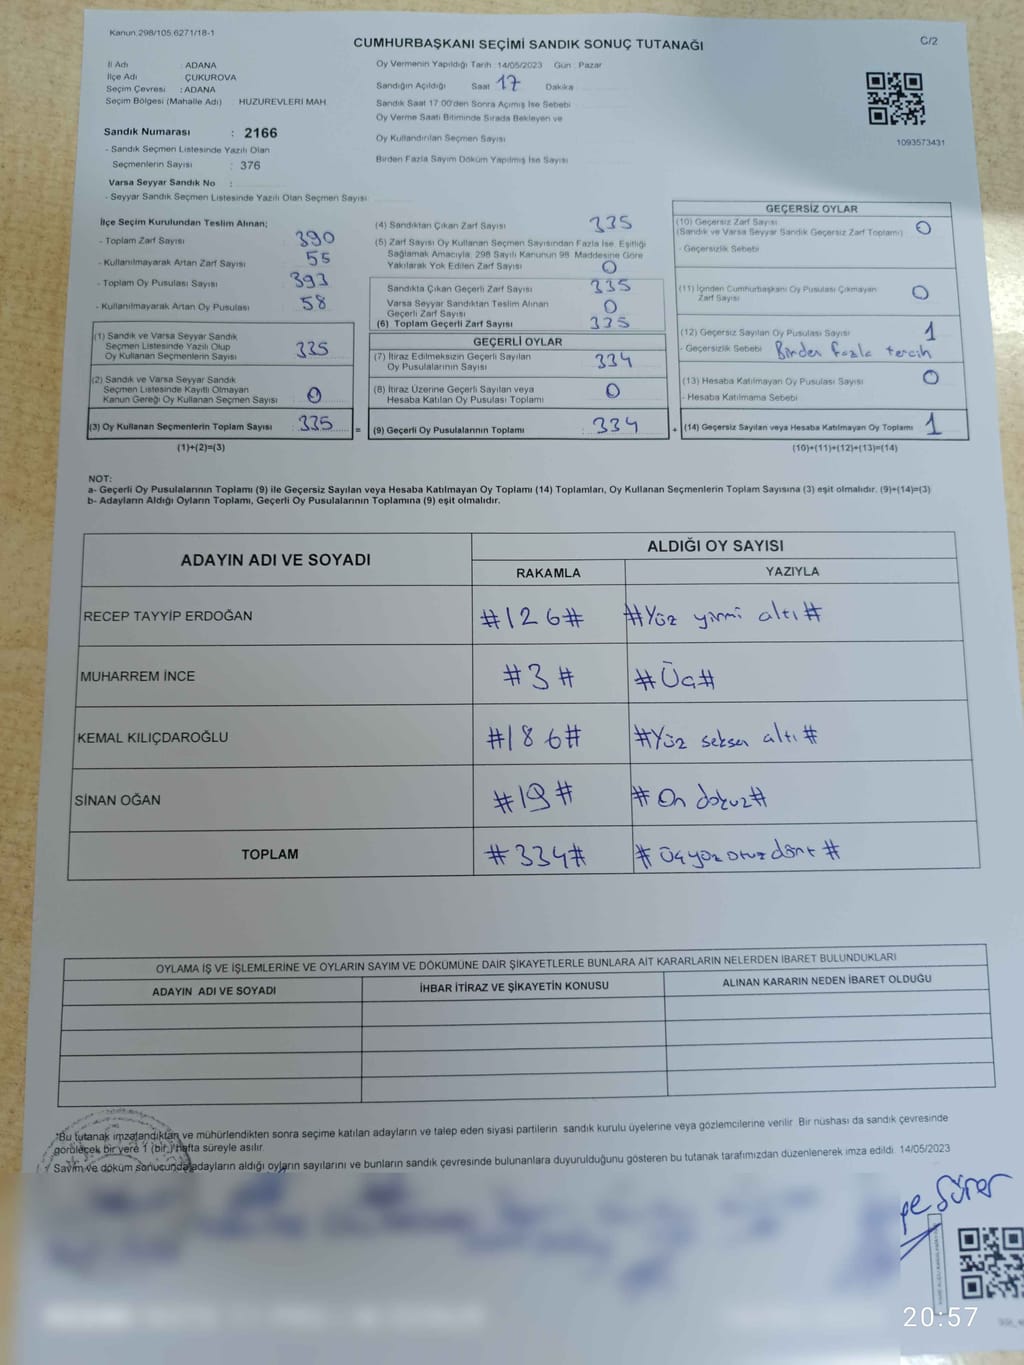 Kanun:298/105,6271/18-1
CUMHURBAŞKANI SEÇİMİ SANDIK SONUÇ TUTANAĞI
C/2
İl Adı : ADANA
İlçe Adı : ÇUKUROVA
Seçim Çevresi : ADANA
Seçim Bölgesi (Mahalle Adı) HUZUREVLERİ MAH
Sandık Numarası : 2166
- Sandık Seçmen Listesinde Yazılı Olan
Seçmenlerin Sayısı : 376
Varsa Seyyar Sandık No :
- Seyyar Sandık Seçmen Listesinde Yazılı Olan Seçmen Sayısı
Oy Vermenin Yapıldığı Tarih :14/05/2023 Gün : Pazar
Sandığın Açıldığı Saat 17 Dakika
Sandık Saat 17.00'den Sonra Açımış İse Sebebi
Oy Verme Saati Bitiminde Sırada Bekleyen ve
Oy Kullandırılan Seçmen Sayısı
Birden Fazla Sayım Döküm Yapılmış İse Sayısı
1093573431
İlçe Seçim Kurulundan Teslim Alınan;
- Toplam Zarf Sayısı : 390
- Kullanılmayarak Artan Zarf Sayısı : 55
- Toplam Oy Pusulası Sayısı : 393
- Kullanılmayarak Artan Oy Pusulası : 58
(1) Sandık ve Varsa Seyyar Sandık
Seçmen Listesinde Yazılı Olup
Oy Kullanan Seçmenlerin Sayısı : 335
(2) Sandık ve Varsa Seyyar Sandık
Seçmen Listesinde Kayıtlı Olmayan
Kanun Gereği Oy Kullanan Seçmen Sayısı : 0
(3) Oy Kullanan Seçmenlerin Toplam Sayısı : 335 =
(1)+(2)=(3)
(4) Sandıktan Çıkan Zarf Sayısı 335
(5) Zarf Sayısı Oy Kullanan Seçmen Sayısından Fazla İse, Eşitliği
Sağlamak Amacıyla, 298 Sayılı Kanunun 98. Maddesine Göre
Yakılarak Yok Edilen Zarf Sayısı 0
Sandıkta Çıkan Geçerli Zarf Sayısı : 335
Varsa Seyyar Sandıktan Teslim Alınan
Geçerli Zarf Sayısı 0
(6) Toplam Geçerli Zarf Sayısı : 335
GEÇERLİ OYLAR
(7) İtiraz Edilmeksizin Geçerli Sayılan
Oy Pusulalarının Sayısı : 334
(8) İtiraz Üzerine Geçerli Sayılan veya
Hesaba Katılan Oy Pusulası Toplamı : 0
(9) Geçerli Oy Pusulalarının Toplamı : 334 +
GEÇERSİZ OYLAR
(10) Geçersiz Zarf Sayısı
(Sandık ve Varsa Seyyar Sandık Geçersiz Zarf Toplamı) : 0
- Geçersizlik Sebebi
(11) İçinden Cumhurbaşkanı Oy Pusulası Çıkmayan
Zarf Sayısı 0
(12) Geçersiz Sayılan Oy Pusulası Sayısı 1
- Geçersizlik Sebebi Birden fazla tercih
(13) Hesaba Katılmayan Oy Pusulası Sayısı 0
- Hesaba Katılmama Sebebi
(14) Geçersiz Sayılan veya Hesaba Katılmayan Oy Toplamı : 1
(10)+(11)+(12)+(13)=(14)
NOT:
a- Geçerli Oy Pusulalarının Toplamı (9) ile Geçersiz Sayılan veya Hesaba Katılmayan Oy Toplamı (14) Toplamları, Oy Kullanan Seçmenlerin Toplam Sayısına (3) eşit olmalıdır. (9)+(14)=(3)
b- Adayların Aldığı Oyların Toplamı, Geçerli Oy Pusulalarının Toplamına (9) eşit olmalıdır.
ADAYIN ADI VE SOYADI ALDIĞI OY SAYISI
RAKAMLA YAZIYLA
RECEP TAYYİP ERDOĞAN #126# #Yüz yirmi altı#
MUHARREM İNCE #3# #Üç#
KEMAL KILIÇDAROĞLU #186# #Yüz seksen altı#
SİNAN OĞAN #19# #On dokuz#
TOPLAM #334# #Üçyüz otuz dört#
OYLAMA İŞ VE İŞLEMLERİNE VE OYLARIN SAYIM VE DÖKÜMÜNE DAİR ŞİKAYETLERLE BUNLARA AİT KARARLARIN NELERDEN İBARET BULUNDUKLARI
ADAYIN ADI VE SOYADI İHBAR İTİRAZ VE ŞİKAYETİN KONUSU ALINAN KARARIN NEDEN İBARET OLDUĞU
*Bu tutanak imzalandıktan ve mühürlendikten sonra seçime katılan adayların ve talep eden siyasi partilerin sandık kurulu üyelerine veya gözlemcilerine verilir. Bir nushası da sandık çevresinde
görülecek bir yere 1 (bir) hafta süreyle asılır.
Sayım ve döküm sonucunda adayların aldığı oyların sayılarını ve bunların sandık çevresinde bulunanlara duyurulduğunu gösteren bu tutanak tarafımızdan düzenlenerek imza edildi. 14/05/2023
20:57